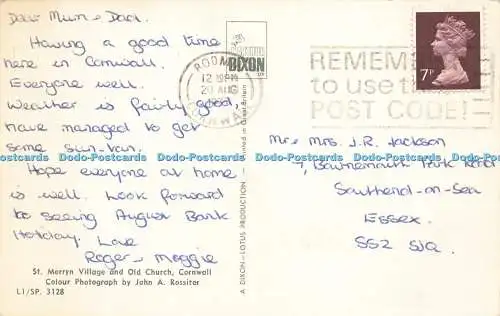 Dear Mum & Dad.
Having a good time
here in Cornwall.
Everyone well.
Weather is fairly good,
have managed to get
some sun-tan.
Hope everyone at home
is well. Look forward
to seeing August Bank
Holiday. Love
Roger & Maggie
St. Merryn Village and Old Church, Cornwall
Colour Photograph by John A. Rossiter
LI/SP. 3128
DIXON
A DIXON-LOTUS PRODUCTION
Printed in Great Britain
12
20 AUG
CORNWALL
REMEMBER
to use the
POST CODE!
7P
Mr & Mrs. J.R. Jackson
Bournemouth Park Road
Southend-on-Sea
Essex.
SS2 5JQ
Dodo-Postcards Dodo-Postcards Dodo-Postcards Dodo-Postcards Dodo-Postcards Dodo-Postcards